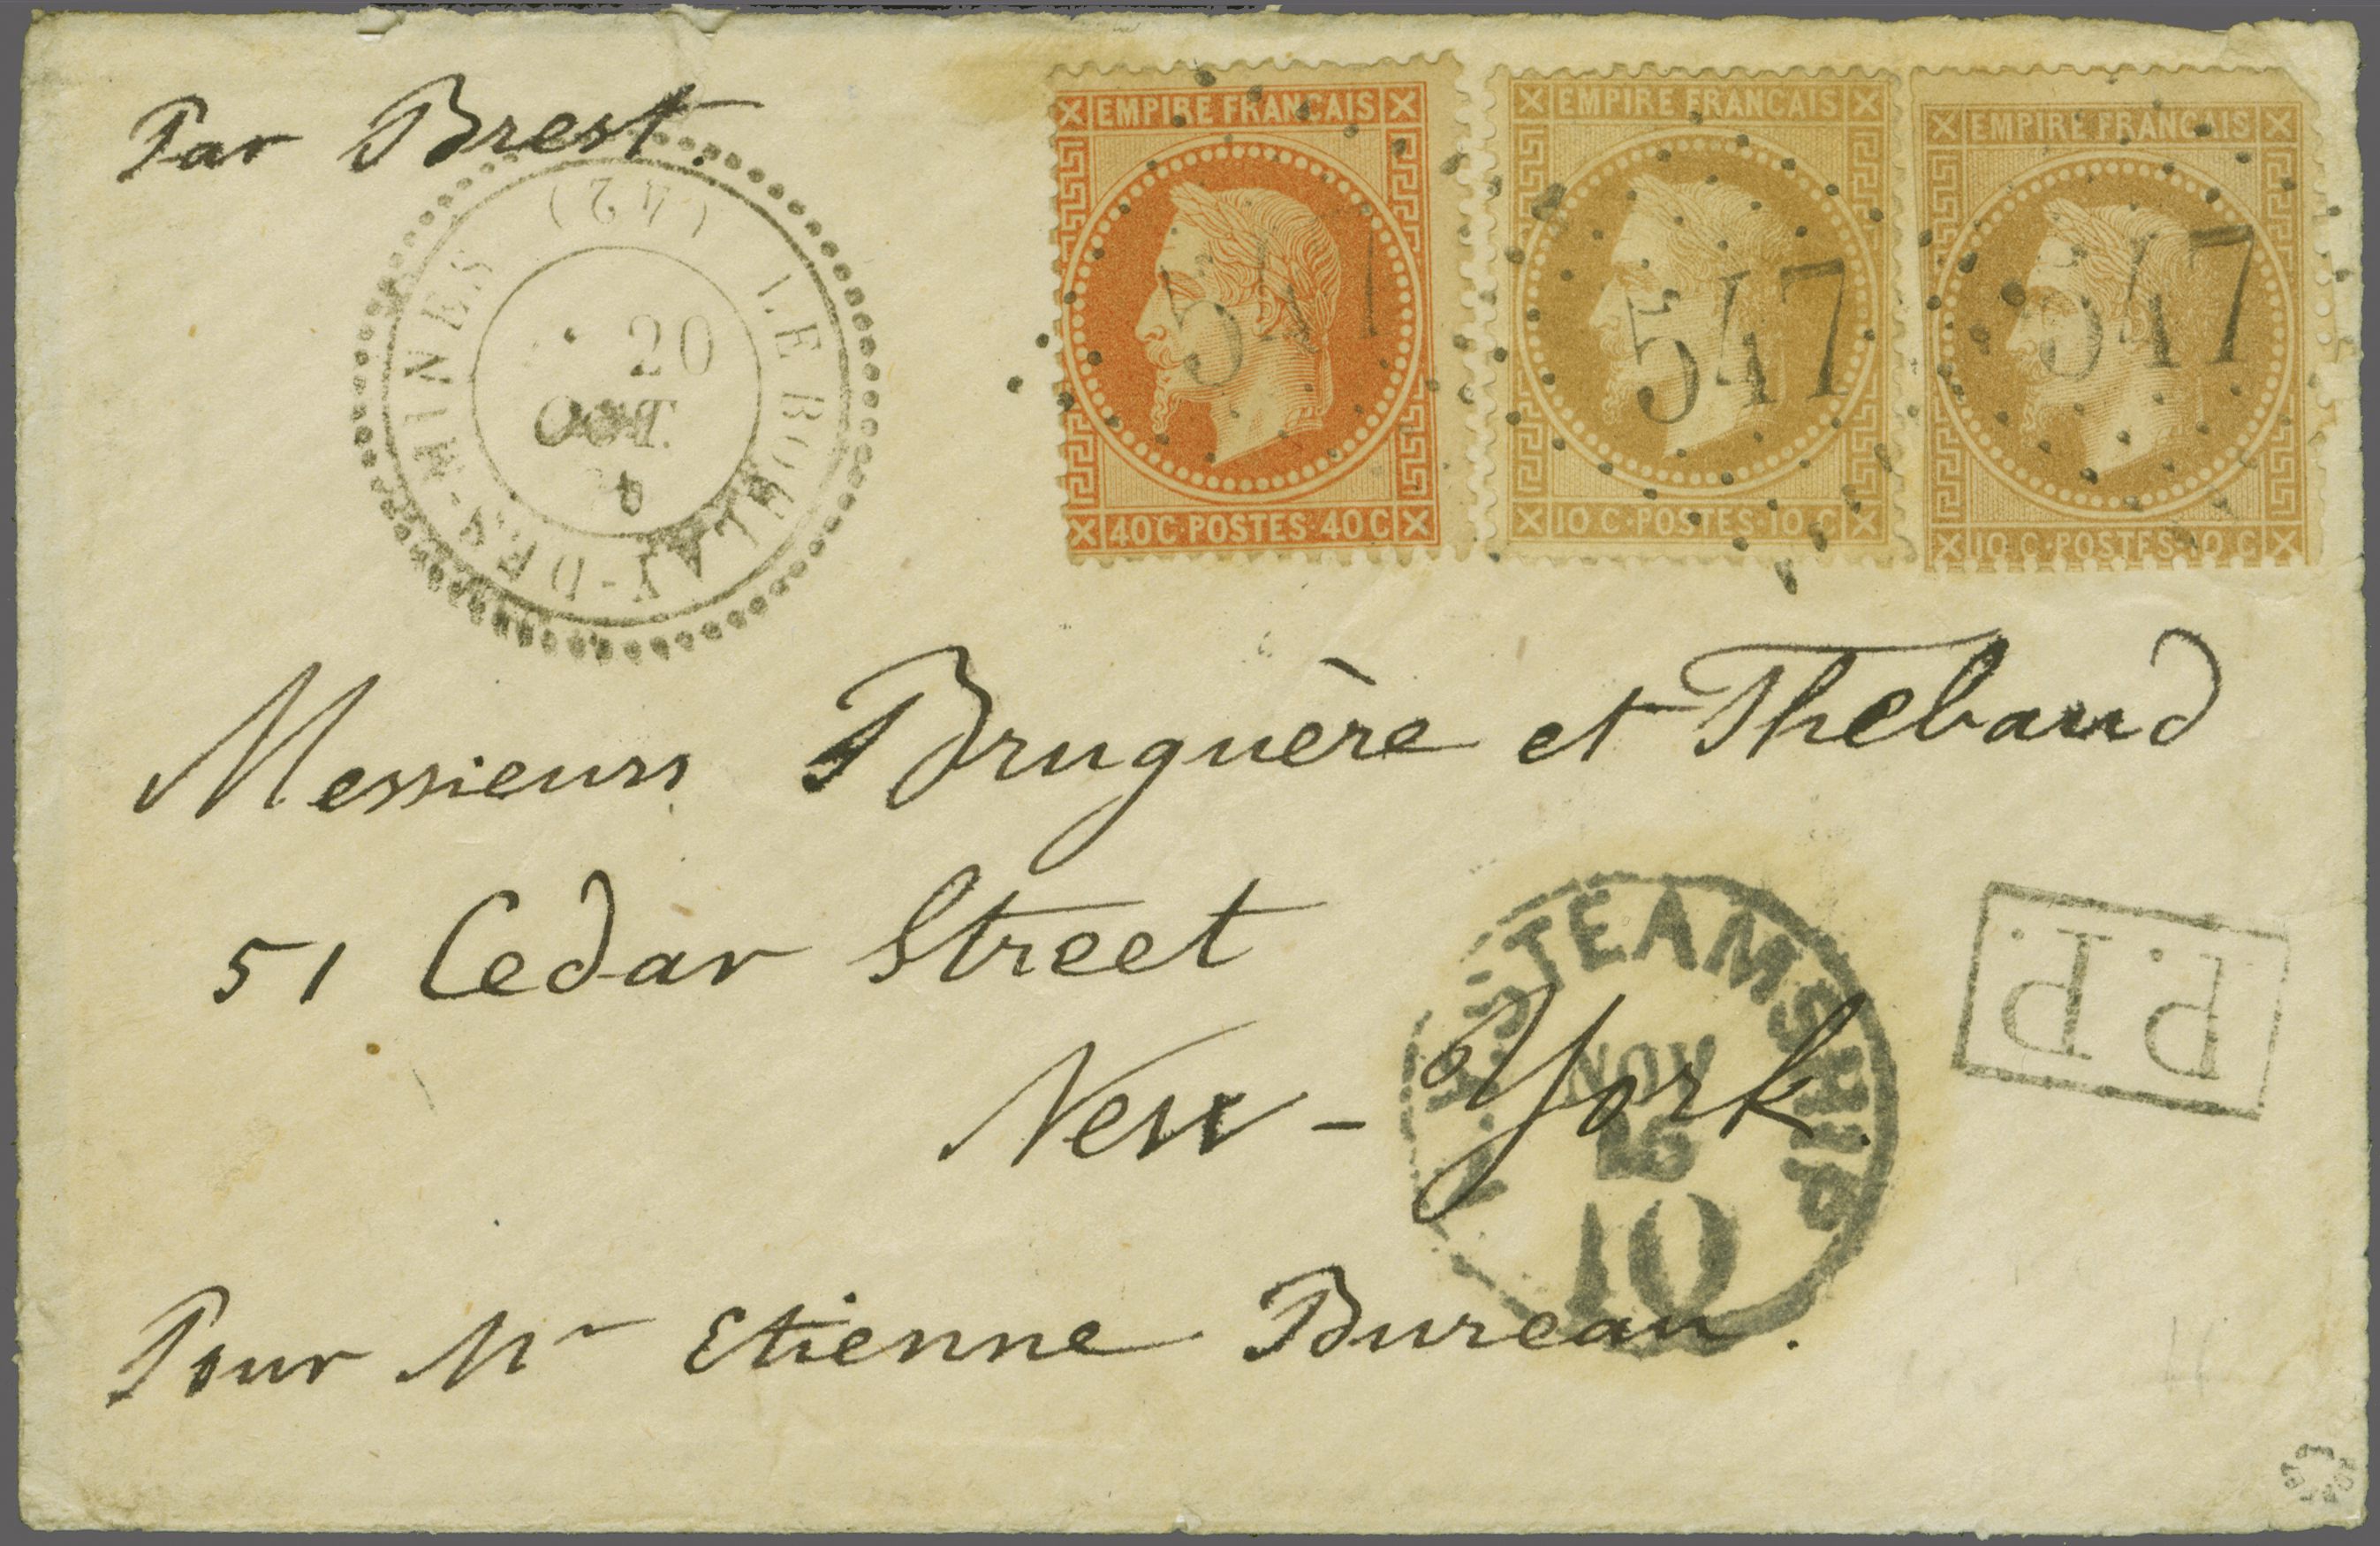 Par Brest.
(42) LE BOULAY-DES-MINES
20
OCT.
EMPIRE FRANCAIS
40 C·POSTES·40 C
547
EMPIRE FRANCAIS
10 C·POSTES·10 C
547
EMPIRE FRANCAIS
10 C·POSTES·10 C
547
Messieurs Bruguère et Thebaud
51 Cedar Street
New-York.
Pour Mr Etienne Bureau.
N.Y. STEAMSHIP
NOV
10
P.P.